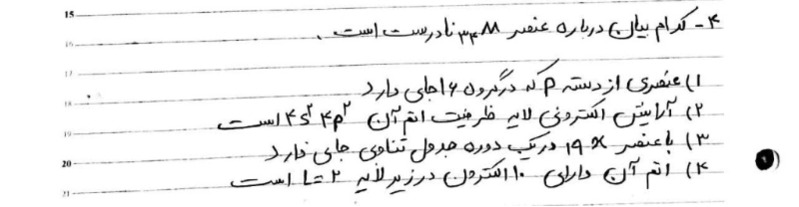 15
۴- کدام بیان درباره عنصر ₃₄M نادرست است.
16
17
۱) عنصری از دسته p که در گروه ۱۶ جای دارد
18
۲) آرایش الکترونی لایه ظرفیت اتم آن ۴s² ۴p² است
19
۳) با عنصر ₁₉X در یک دوره جدول تناوبی جای دارد
20
۴) اتم آن دارای ۱۰ الکترون در زیر لایه l=۲ است
21